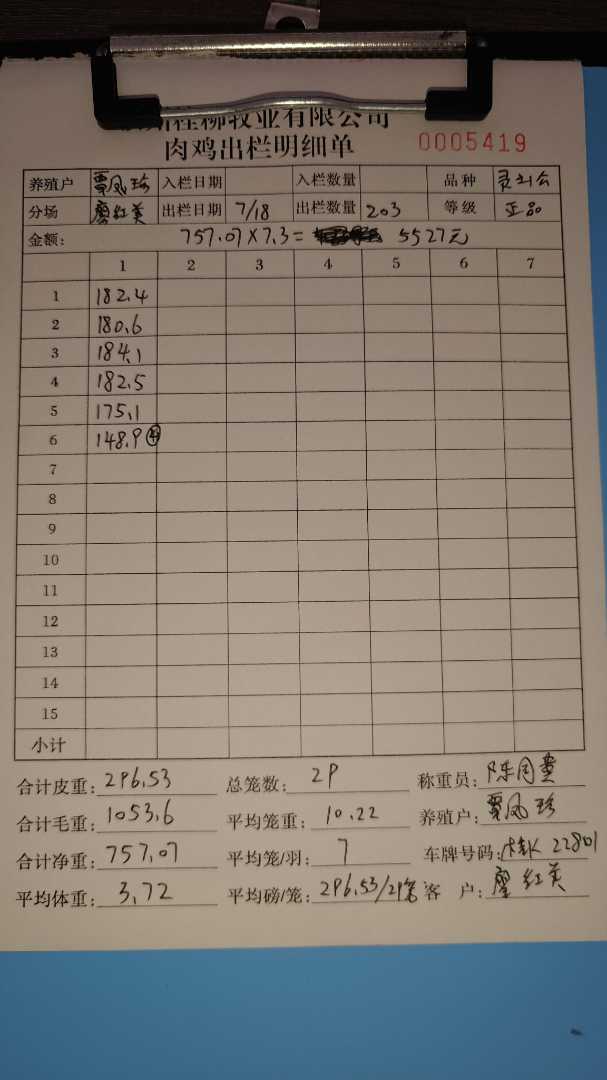 桂柳牧业有限公司
肉鸡出栏明细单 0005419
养殖户 覃凤珍 入栏日期 入栏数量 品种
分场 廖红英 出栏日期 7/18 出栏数量 203 等级 正品
金额: 757.07×7.3= 5527元
1 2 3 4 5 6 7
1 182.4
2 180.6
3 184.1
4 182.5
5 175.1
6 148.9 ④
7
8
9
10
11
12
13
14
15
小计
合计皮重: 296.53 总笼数: 29 称重员: 陈同贵
合计毛重: 1053.6 平均笼重: 10.22 养殖户: 覃凤珍
合计净重: 757.07 平均笼/羽: 7 车牌号码: 桂K 22801
平均体重: 3.72 平均磅/笼: 296.53/29笼 客 户: 廖红英